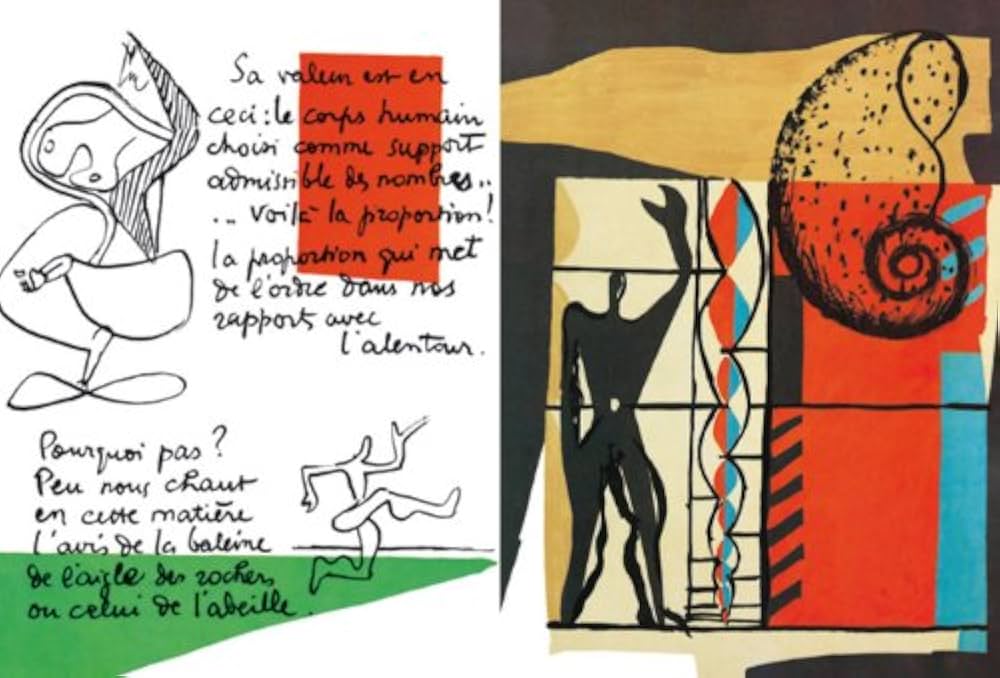 Sa valeur est en
ceci : le corps humain
choisi comme support
admissible des nombres..
... Voilà la proportion!
la proportion qui met
de l'ordre dans nos
rapports avec
l'alentour.
Pourquoi pas ?
Peu nous chaut
en cette matière
l'avis de la baleine
de l'aigle des rochers
ou celui de l'abeille.